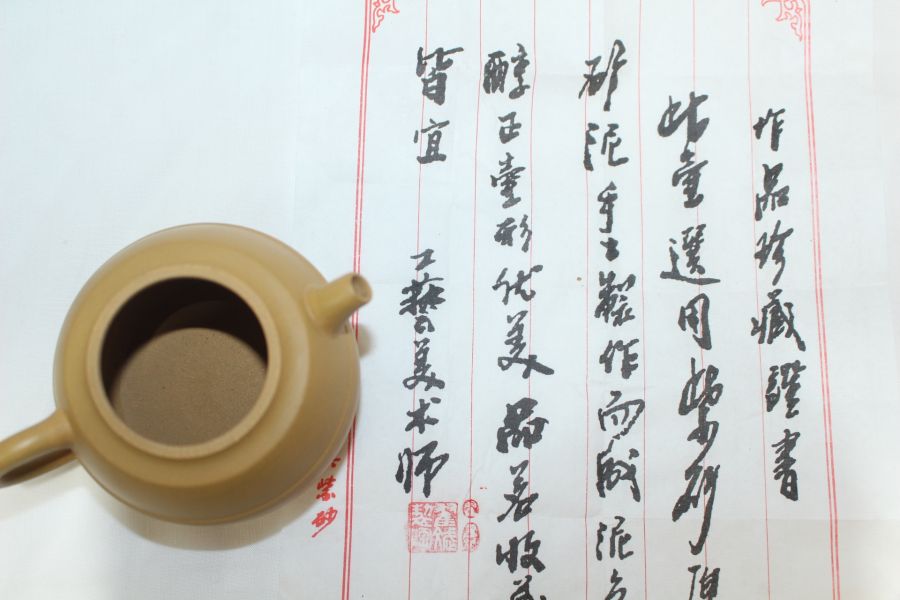 作品珍藏證書
此壶選用紫砂原
砂泥手工製作而成泥色
醇正壺形优美品茗收藏
皆宜 工藝美术师
紫砂